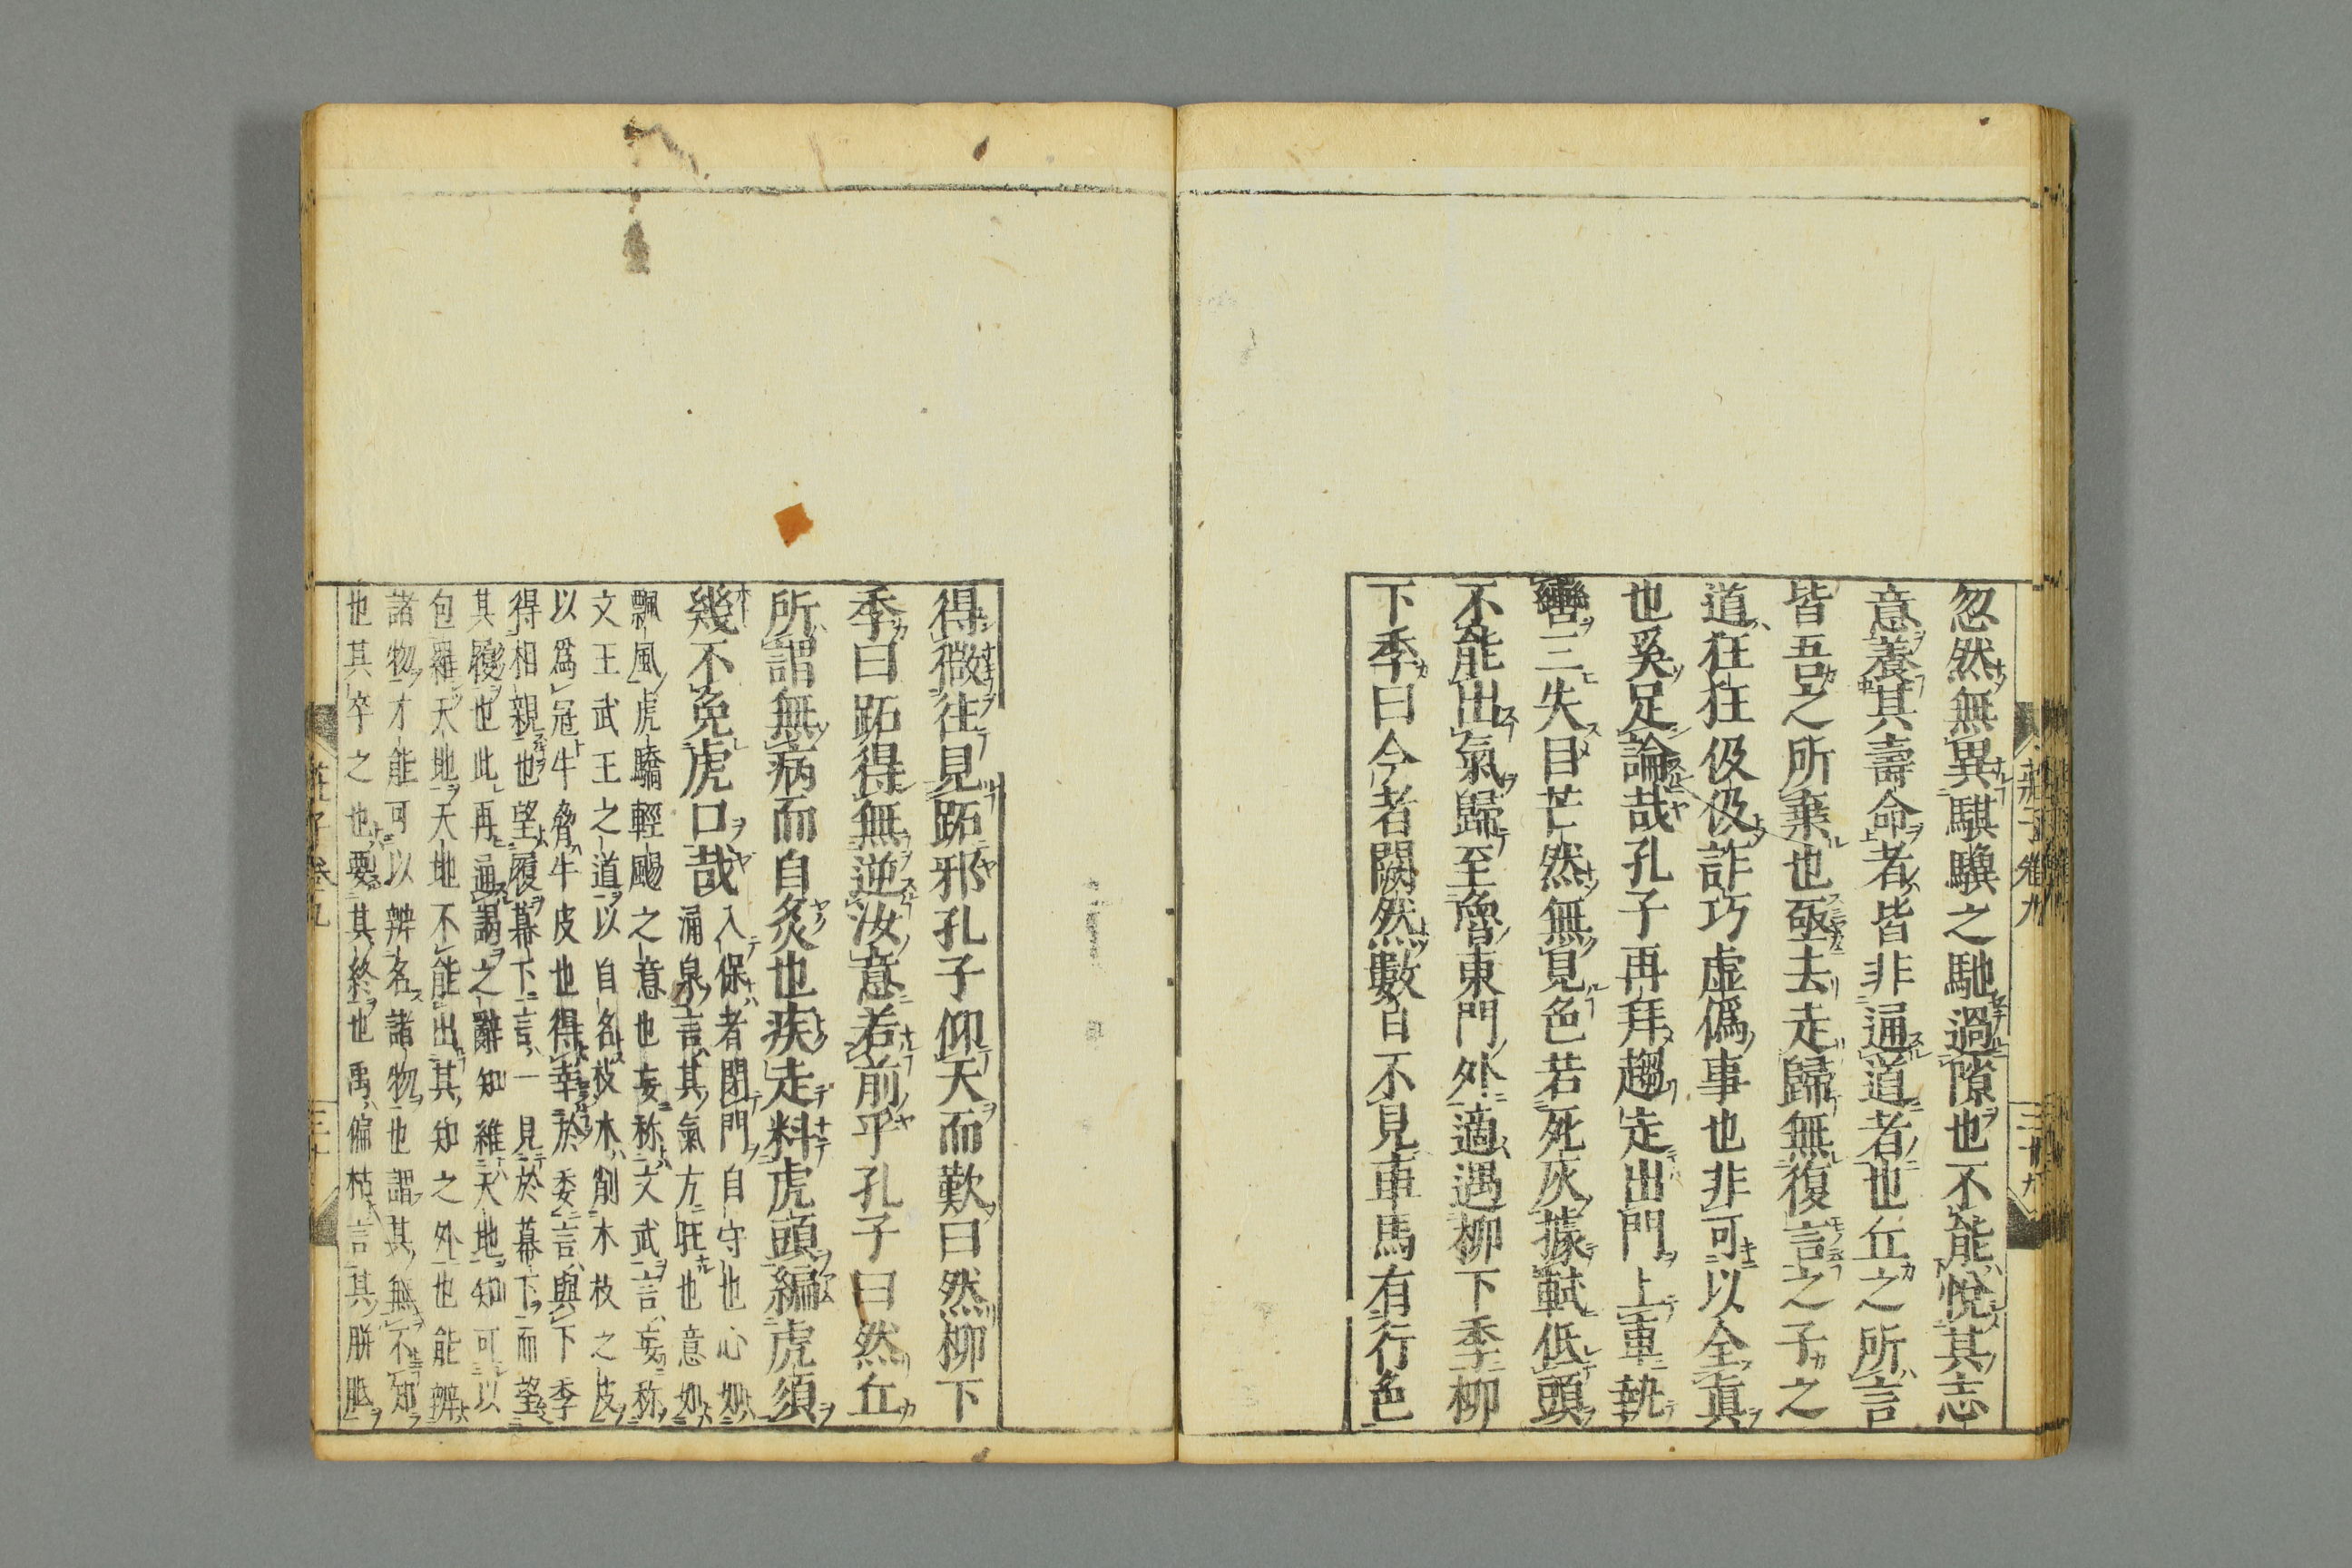 忽然無異騏驥之馳過隙也不能悅其志
意養其壽命者皆非通道者也丘之所言
皆吾之所棄也亟去走歸無復言之子之
道狂狂伋伋詐巧虛僞事也非可以全真
也奚足論哉孔子再拜趨走出門上車執
轡三失目芒然無見色若死灰據軾低頭
不能出氣歸至魯東門外適遇柳下季柳
下季曰今者闕然數日不見車馬有行色
得微往見跖邪孔子仰天而歎曰然柳下
季曰跖得無逆汝意若前乎孔子曰然丘
所謂無病而自灸也疾走料虎頭編虎須
幾不免虎口哉
入保者閉門自守也心如
涌泉言其氣方旺也意如
飄風虎驕輕颺之意也妄称文武言妄称
文王武王之道以自名枝木削木枝之皮
以爲冠牛脅牛皮也得幸於委言與下季
得相親也望履幕下言一見於幕下而望
其履也此再通謁之辭知維天地知可以
包羅天地天地不能出其知之外也能辨
諸物才能可以辨名諸物也謂其無不知
也其卒之也要其終也禹偏枯言其胼胝
莊子卷九